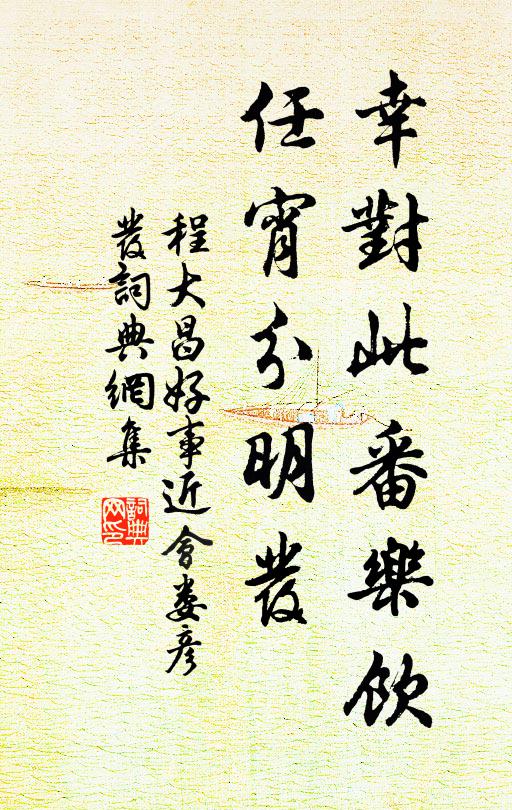 幸對此番樂飲
任宵分明發
程大昌好事近會婁彥
發詞典網集
詞典
网印